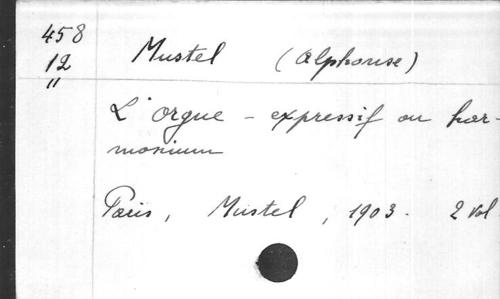 458
12
"
Mustel (Alphonse)
L'orgue - expressif ou har-
monium
Paris, Mustel, 1903. 2 vol